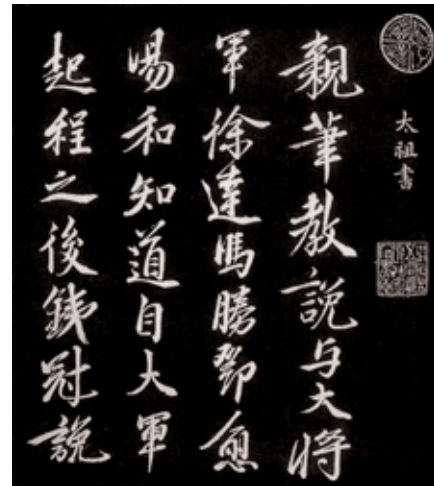 太祖書
親筆教說与大将
軍徐達馮勝鄧愈
湯和知道自大軍
起程之後銕冠說